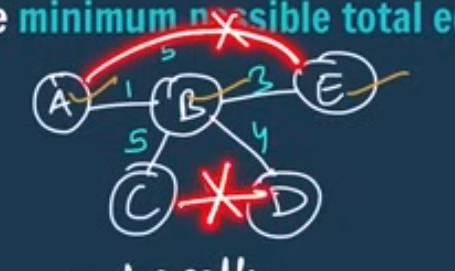 e minimum possible total e
5
A 1 B 3 E
5 4
C D